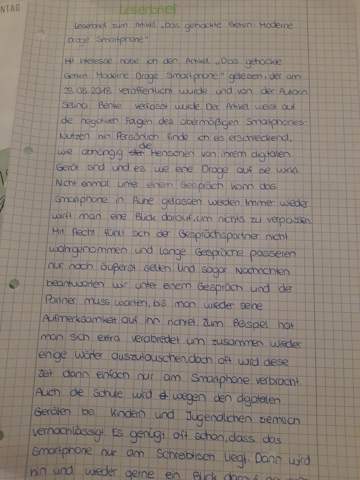 NTAG
Leserbrief
Leserbrief zum Artikel „Das gehackte Gehirn: Moderne
Droge Smartphone"
Mit Interesse habe ich den Artikel „Das gehackte
Gehirn: Moderne Droge Smartphone" gelesen, der am
29.08.2018 veröffentlicht wurde und von der Autorin
Selina Benke verfasst wurde. Der Artikel weist auf
die negativen Folgen des übermäßigen Smartphones-
Nutzen hin. Persönlich finde ich es erschreckend,
wie abhängig die Menschen von ihrem digitalen
Gerät sind und es wie eine Droge auf sie wirkt.
Nicht enmal unte einem Gespräch kann das
Smartphone in Ruhe gelassen werden. Immer wieder
wirft man eine Blick darauf, um nichts zu verpassen.
Mit Recht fühlt sich der Gesprächspartner nicht
wahrgenommen und lange Gespräche passieren
nur noch äußerst selten. Und sogar Nachrichten
beantworten wir unter einem Gespräch und der
Partner muss warten, bis man wieder seine
Aufmerksamkeit auf ihn richtet. Zum Beispiel hat
man sich extra verabredet um zusammen wieder
einige Wörter auszutauschen, doch oft wird diese
Zeit dann einfach nur am Smartphone verbracht.
Auch die Schule wird wegen den digitalen
Geräten bei Kindern und Jugendlichen ziemlich
vernachlässigt. Es genügt oft schon, dass das
Smartphone nur am Schreibtisch liegt. Dann wird
hin und wieder gerne ein Blick darauf